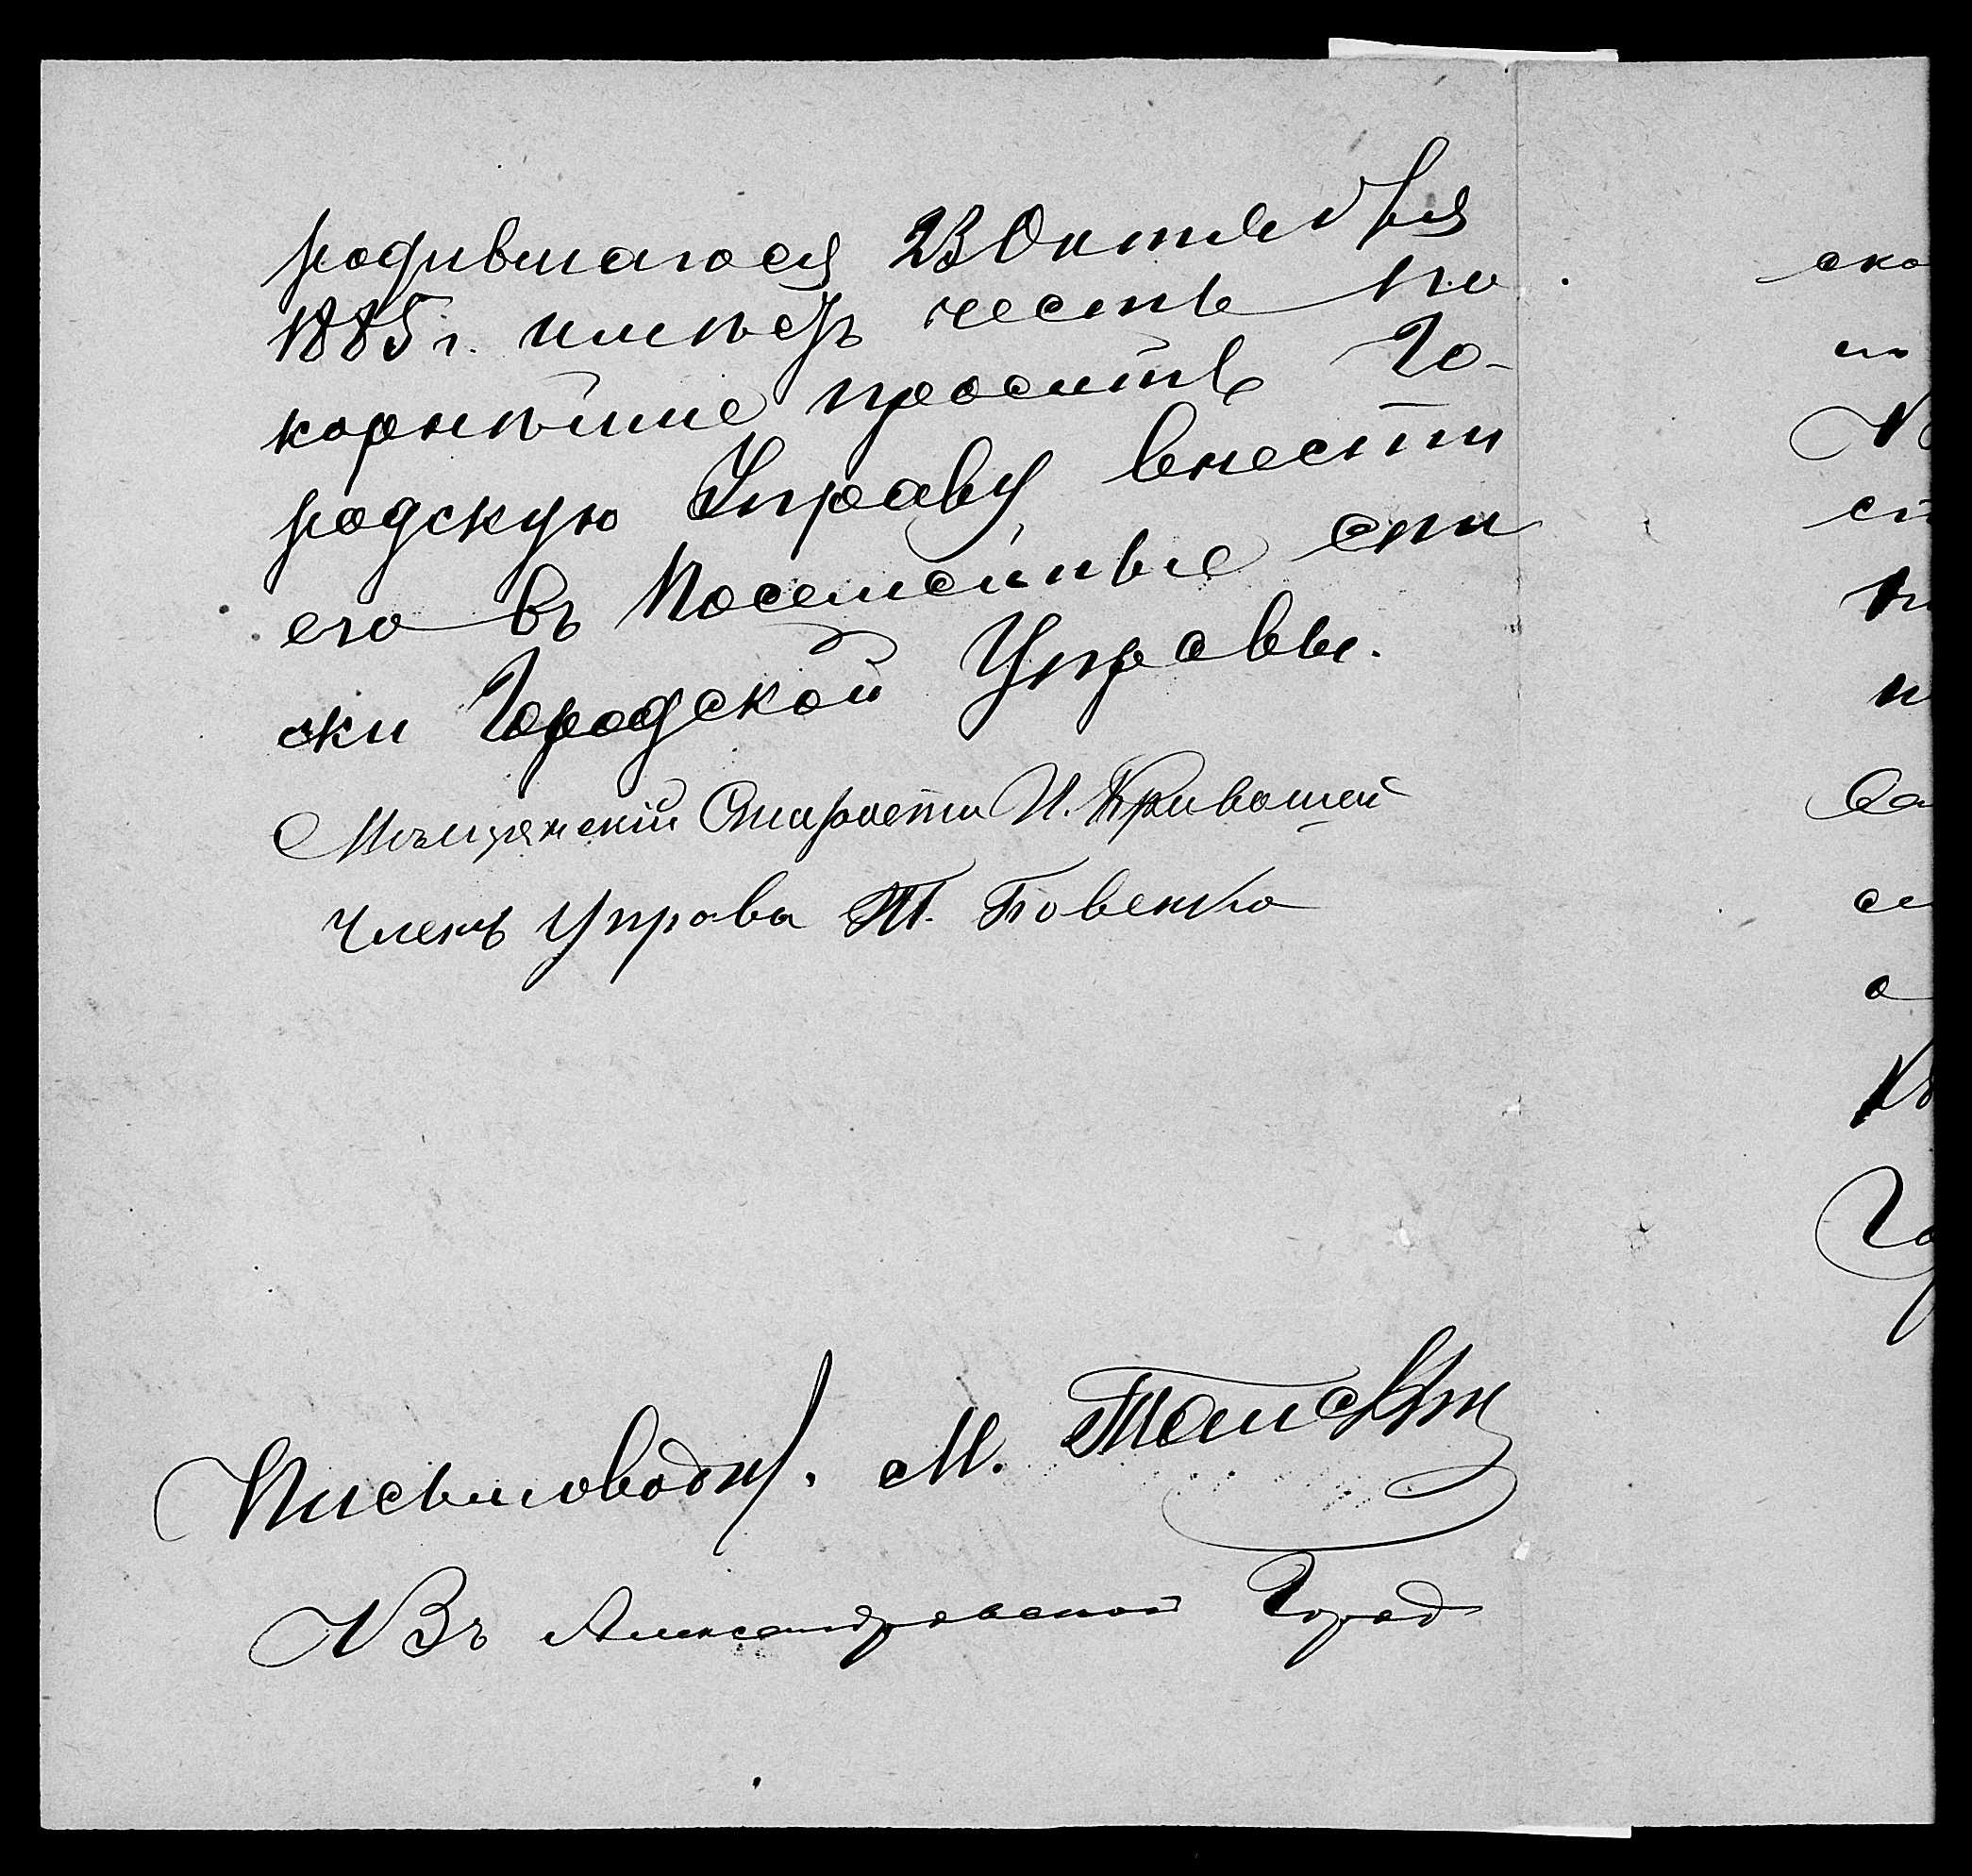 родившагося 23 Октября
1885 г. имѣетъ честь по
корнѣйше просить Го-
родскую Управу внести
его въ Посемейные спи
ски Городской Управы.
Мѣщанскій Староста И. Кривошей
Членъ Управы Т. Бовенко
Письмоводи. М.
Въ Александровской Город
ско
Го